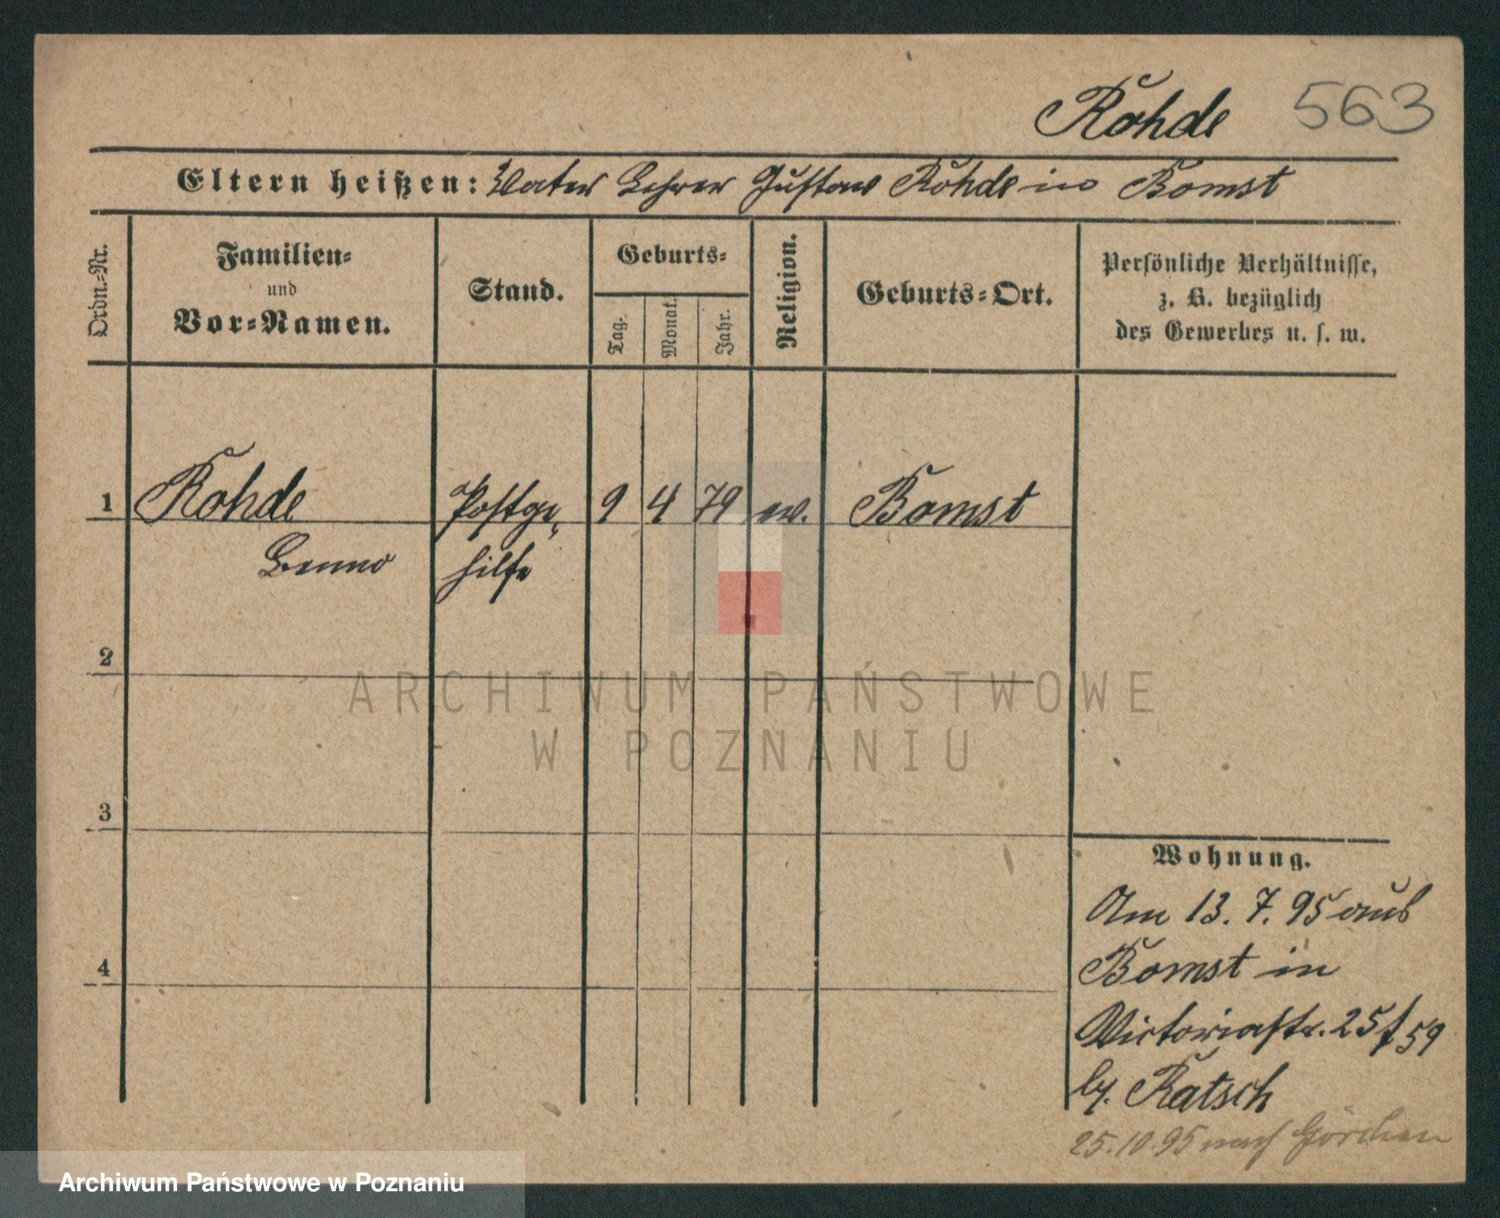 Rohde 563
Eltern heißen: Vater Lehrer Gustav Rohde in Bomst
Ordn.-Nr.
Familien-
und
Vor-Namen.
Stand.
Geburts-
Tag.
Monat.
Jahr.
Religion.
Geburts-Ort.
Persönliche Verhältnisse,
z. B. bezüglich
des Gewerbes u. s. w.
1 Rohde Postge- 9 4 79 ev. Bomst
Benno hilfe
2
3
4
Wohnung.
Am 13. 7. 95 aus
Bomst in
Victoriastr. 25/59
by. Ratsch
25.10.95 nach Görchen
ARCHIWUM PAŃSTWOWE
W POZNANIU
Archiwum Państwowe w Poznaniu